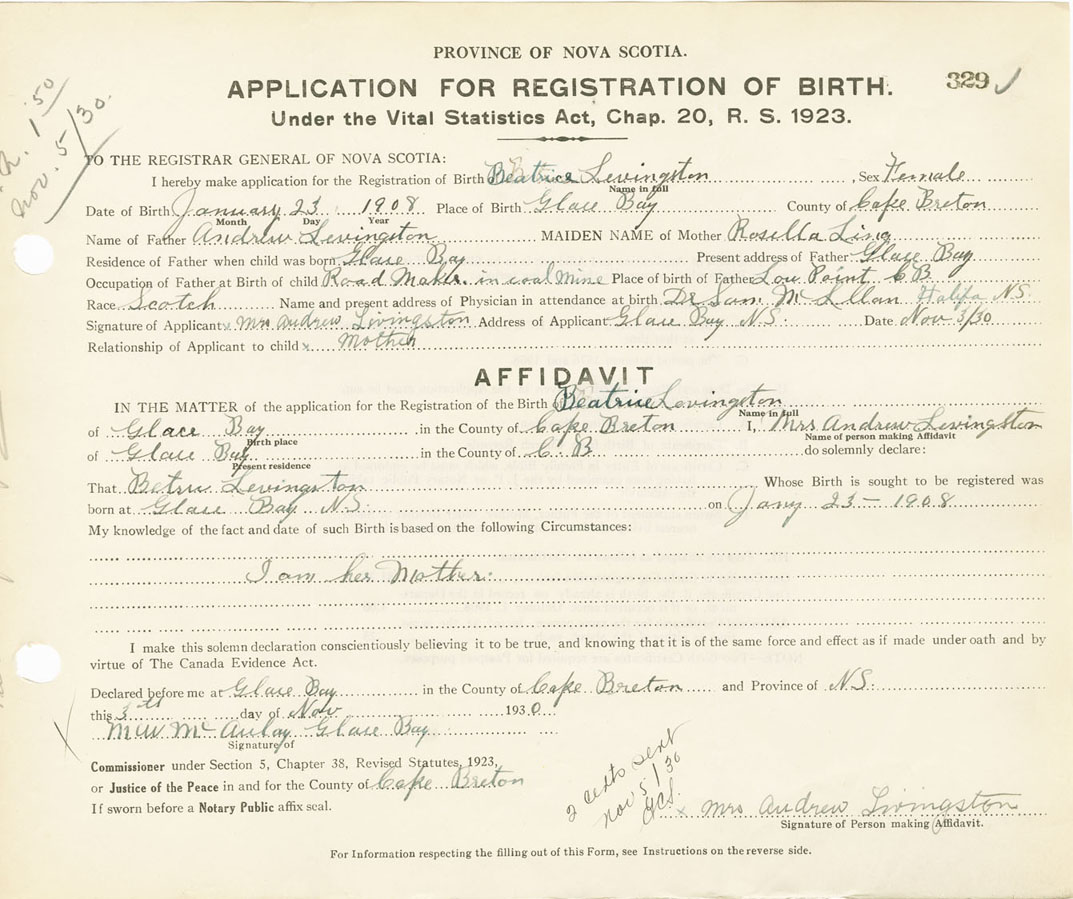 PROVINCE OF NOVA SCOTIA.
APPLICATION FOR REGISTRATION OF BIRTH.
329
Under the Vital Statistics Act, Chap. 20, R. S. 1923.
1.50
Nov. 5/30.
TO THE REGISTRAR GENERAL OF NOVA SCOTIA:
I hereby make application for the Registration of Birth Beatrice Levingston, Sex Female
Name in full
Date of Birth January 23 1908 Place of Birth Glace Bay County of Cape Breton
Month Day Year
Name of Father Andrew Levingston MAIDEN NAME of Mother Rosella Ling
Residence of Father when child was born Glace Bay Present address of Father Glace Bay
Occupation of Father at Birth of child Road Maker in coal Mine Place of birth of Father Low Point C B
Race Scotch Name and present address of Physician in attendance at birth Dr Sam McLllan Halifa NS
Signature of Applicant x Mrs Andrew Livingston Address of Applicant Glace Bay N.S. Date Nov 3/30
Relationship of Applicant to child x Mother
AFFIDAVIT
IN THE MATTER of the application for the Registration of the Birth of Beatrice Levingston
Name in full
of Glace Bay in the County of Cape Breton I, Mrs Andrew Levingston
Birth place Name of person making Affidavit
of Glace Bay in the County of C B do solemnly declare:
Present residence
That Betric Levingston Whose Birth is sought to be registered was
born at Glace Bay N.S. on Jany 23 - 1908
My knowledge of the fact and date of such Birth is based on the following Circumstances:
I am her Mother:
I make this solemn declaration conscientiously believing it to be true, and knowing that it is of the same force and effect as if made under oath and by
virtue of The Canada Evidence Act.
Declared before me at Glace Bay in the County of Cape Breton and Province of N.S.
this 3th day of Nov 1930
McAulay Glace Bay
Signature of
Commissioner under Section 5, Chapter 38, Revised Statutes, 1923,
or Justice of the Peace in and for the County of Cape Breton
If sworn before a Notary Public affix seal.
2 certs sent
Nov 5/30
x Mrs Andrew Livingston
Signature of Person making Affidavit.
For Information respecting the filling out of this Form, see Instructions on the reverse side.